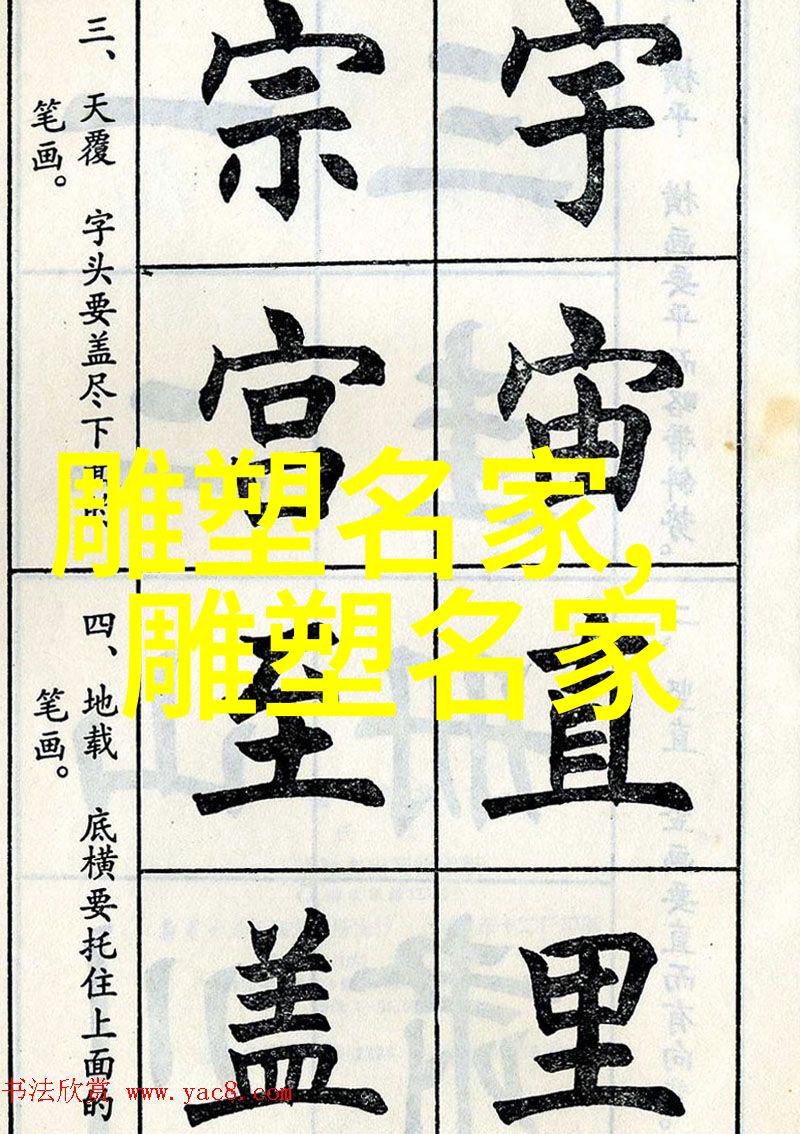 宇
宙
直
里
宗
宫
至
盖
三、天覆 字头要盖尽下
笔画。
四、地载 底横要托住上面的
笔画。
雕塑名家,
雕塑名家
书法欣赏 www.yac8.com